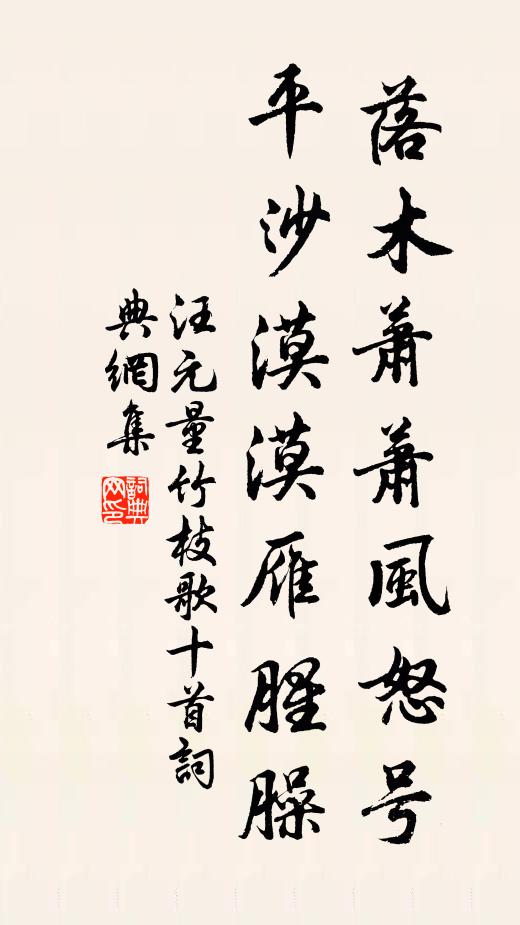 落木蕭蕭風怒号
平沙漠漠雁腥臊
汪元量竹枝歌十首詞
典網集
詞典
网印